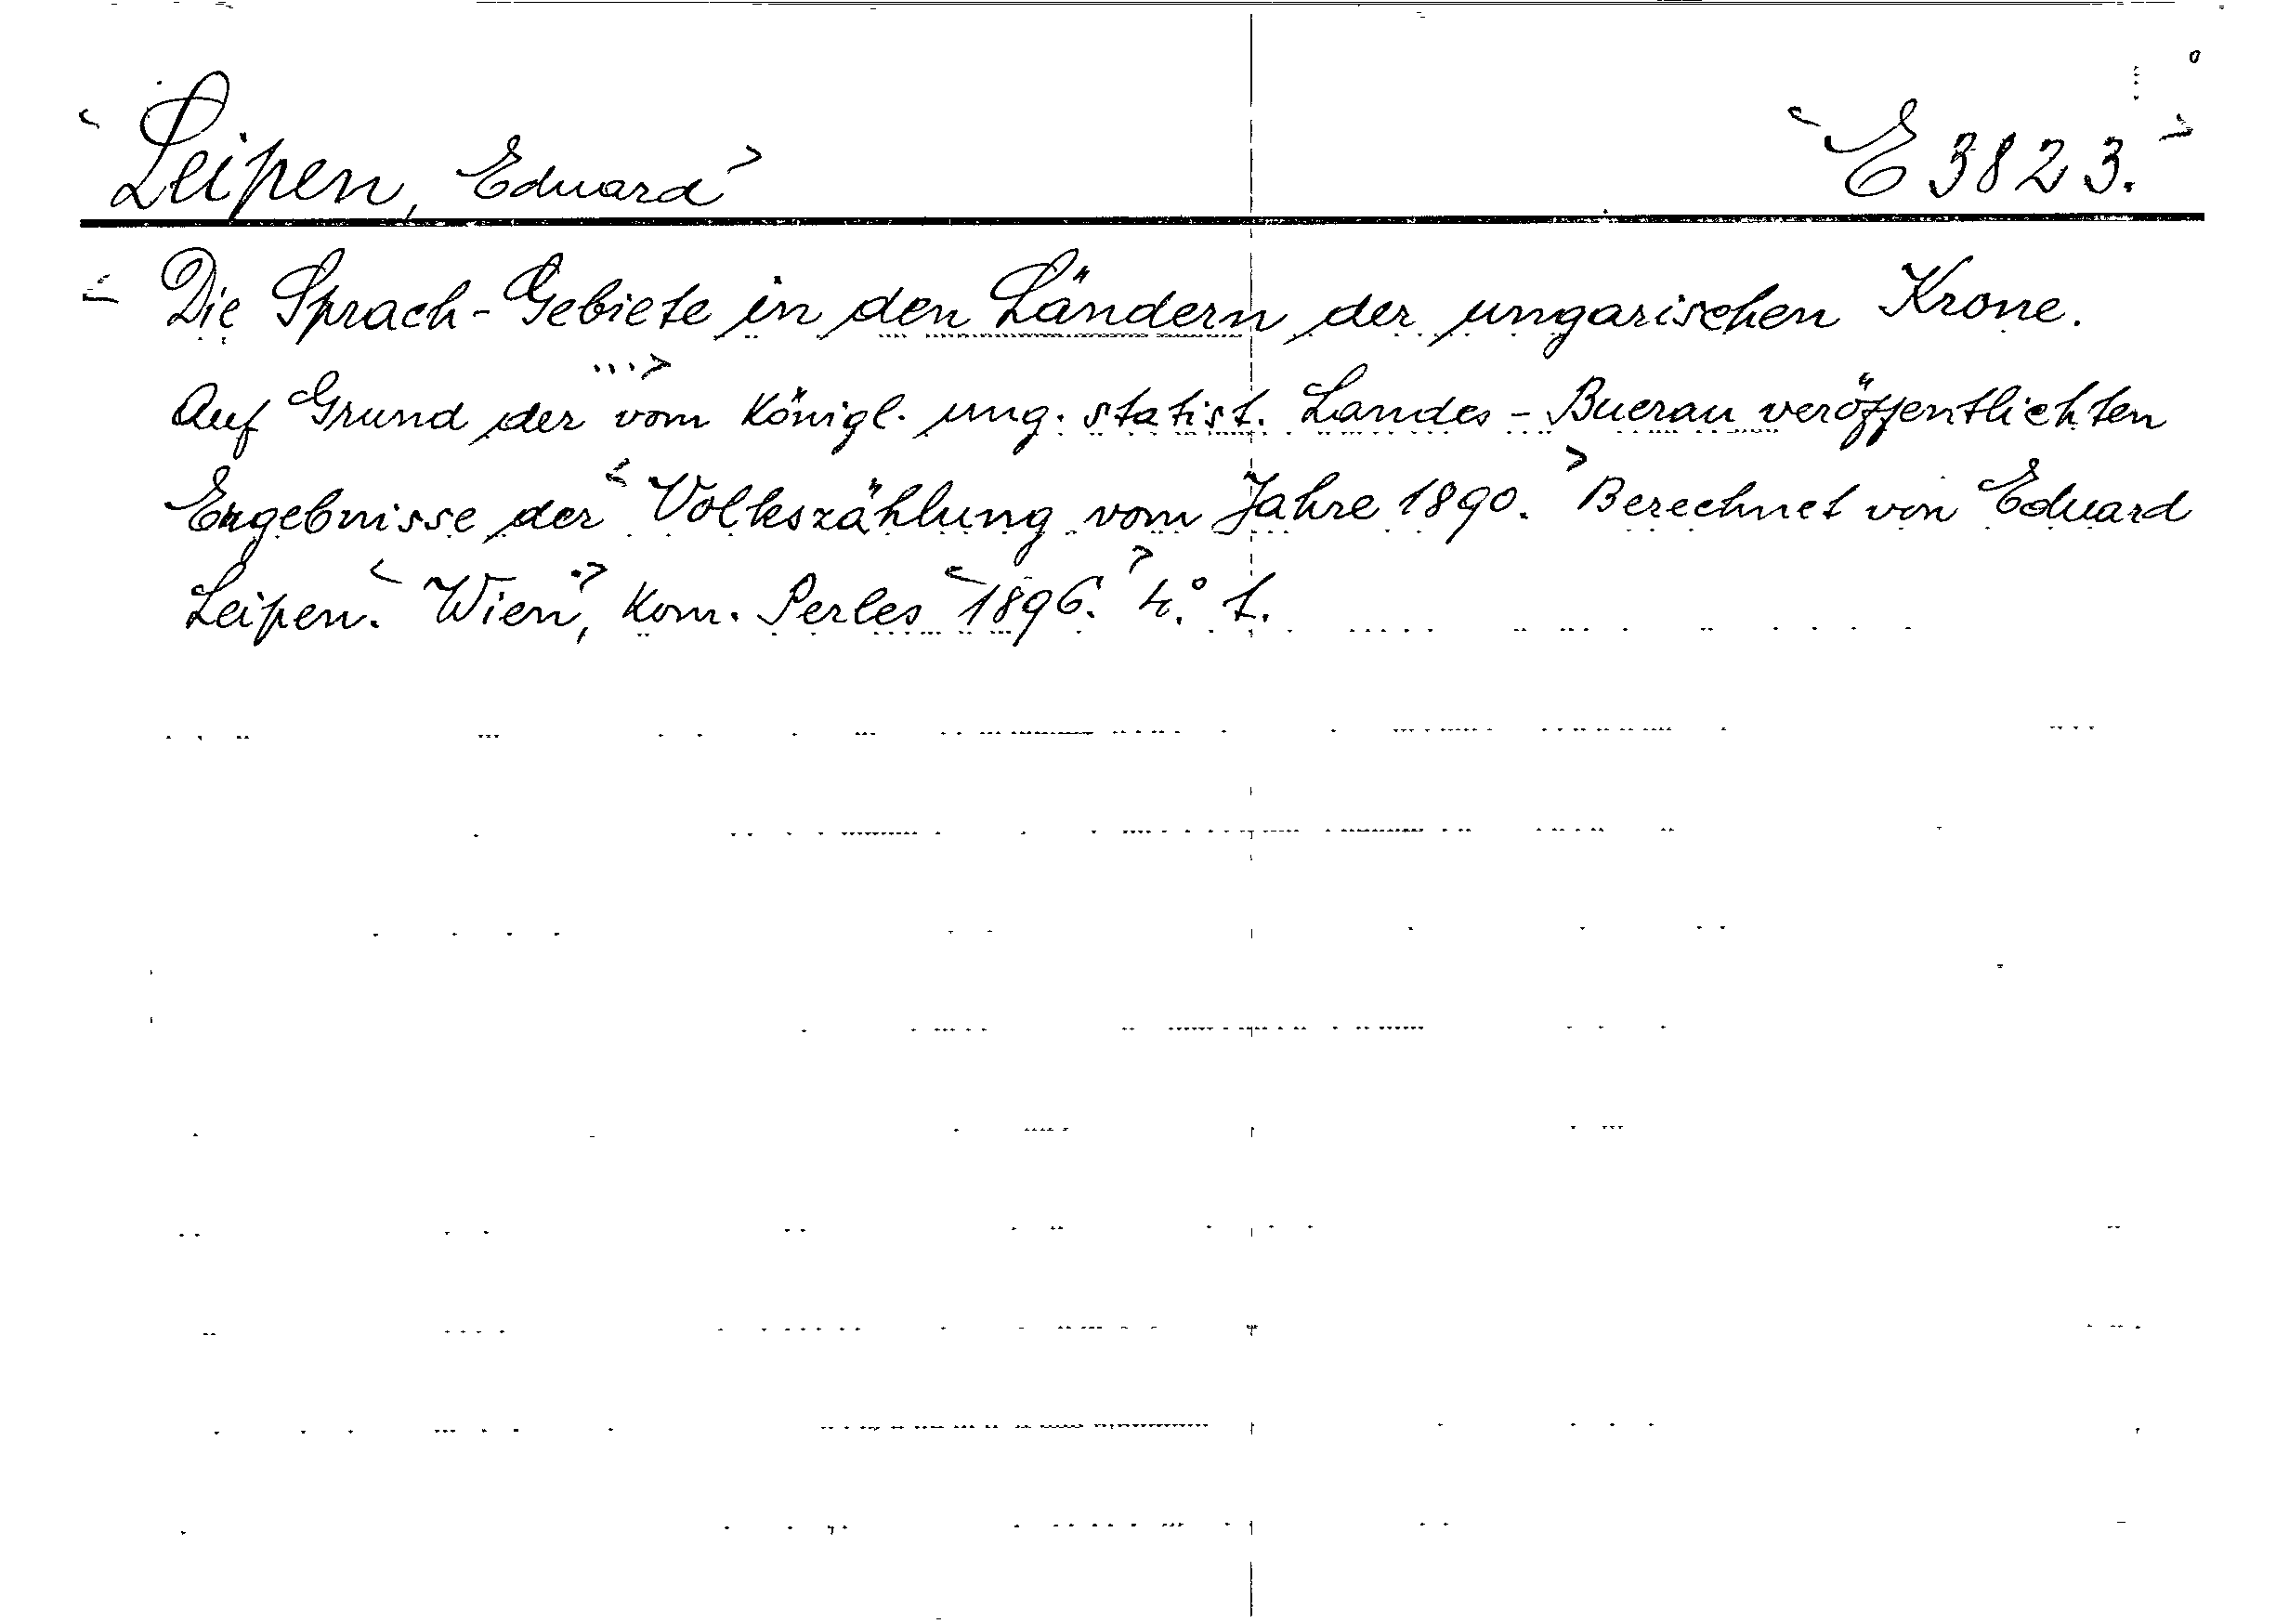 Leipen, Eduard E 3823.
Die Sprach-Gebiete in den Ländern der ungarischen Krone.
Auf Grund der ...> vom Königl. ung. statist. Landes-Buerau veröffentlichten
Ergebnisse der < Volkszählung vom Jahre 1890. > Berechnet von Eduard
Leipen. < Wien, > Kom. Perles < 1896. > 4.° t.